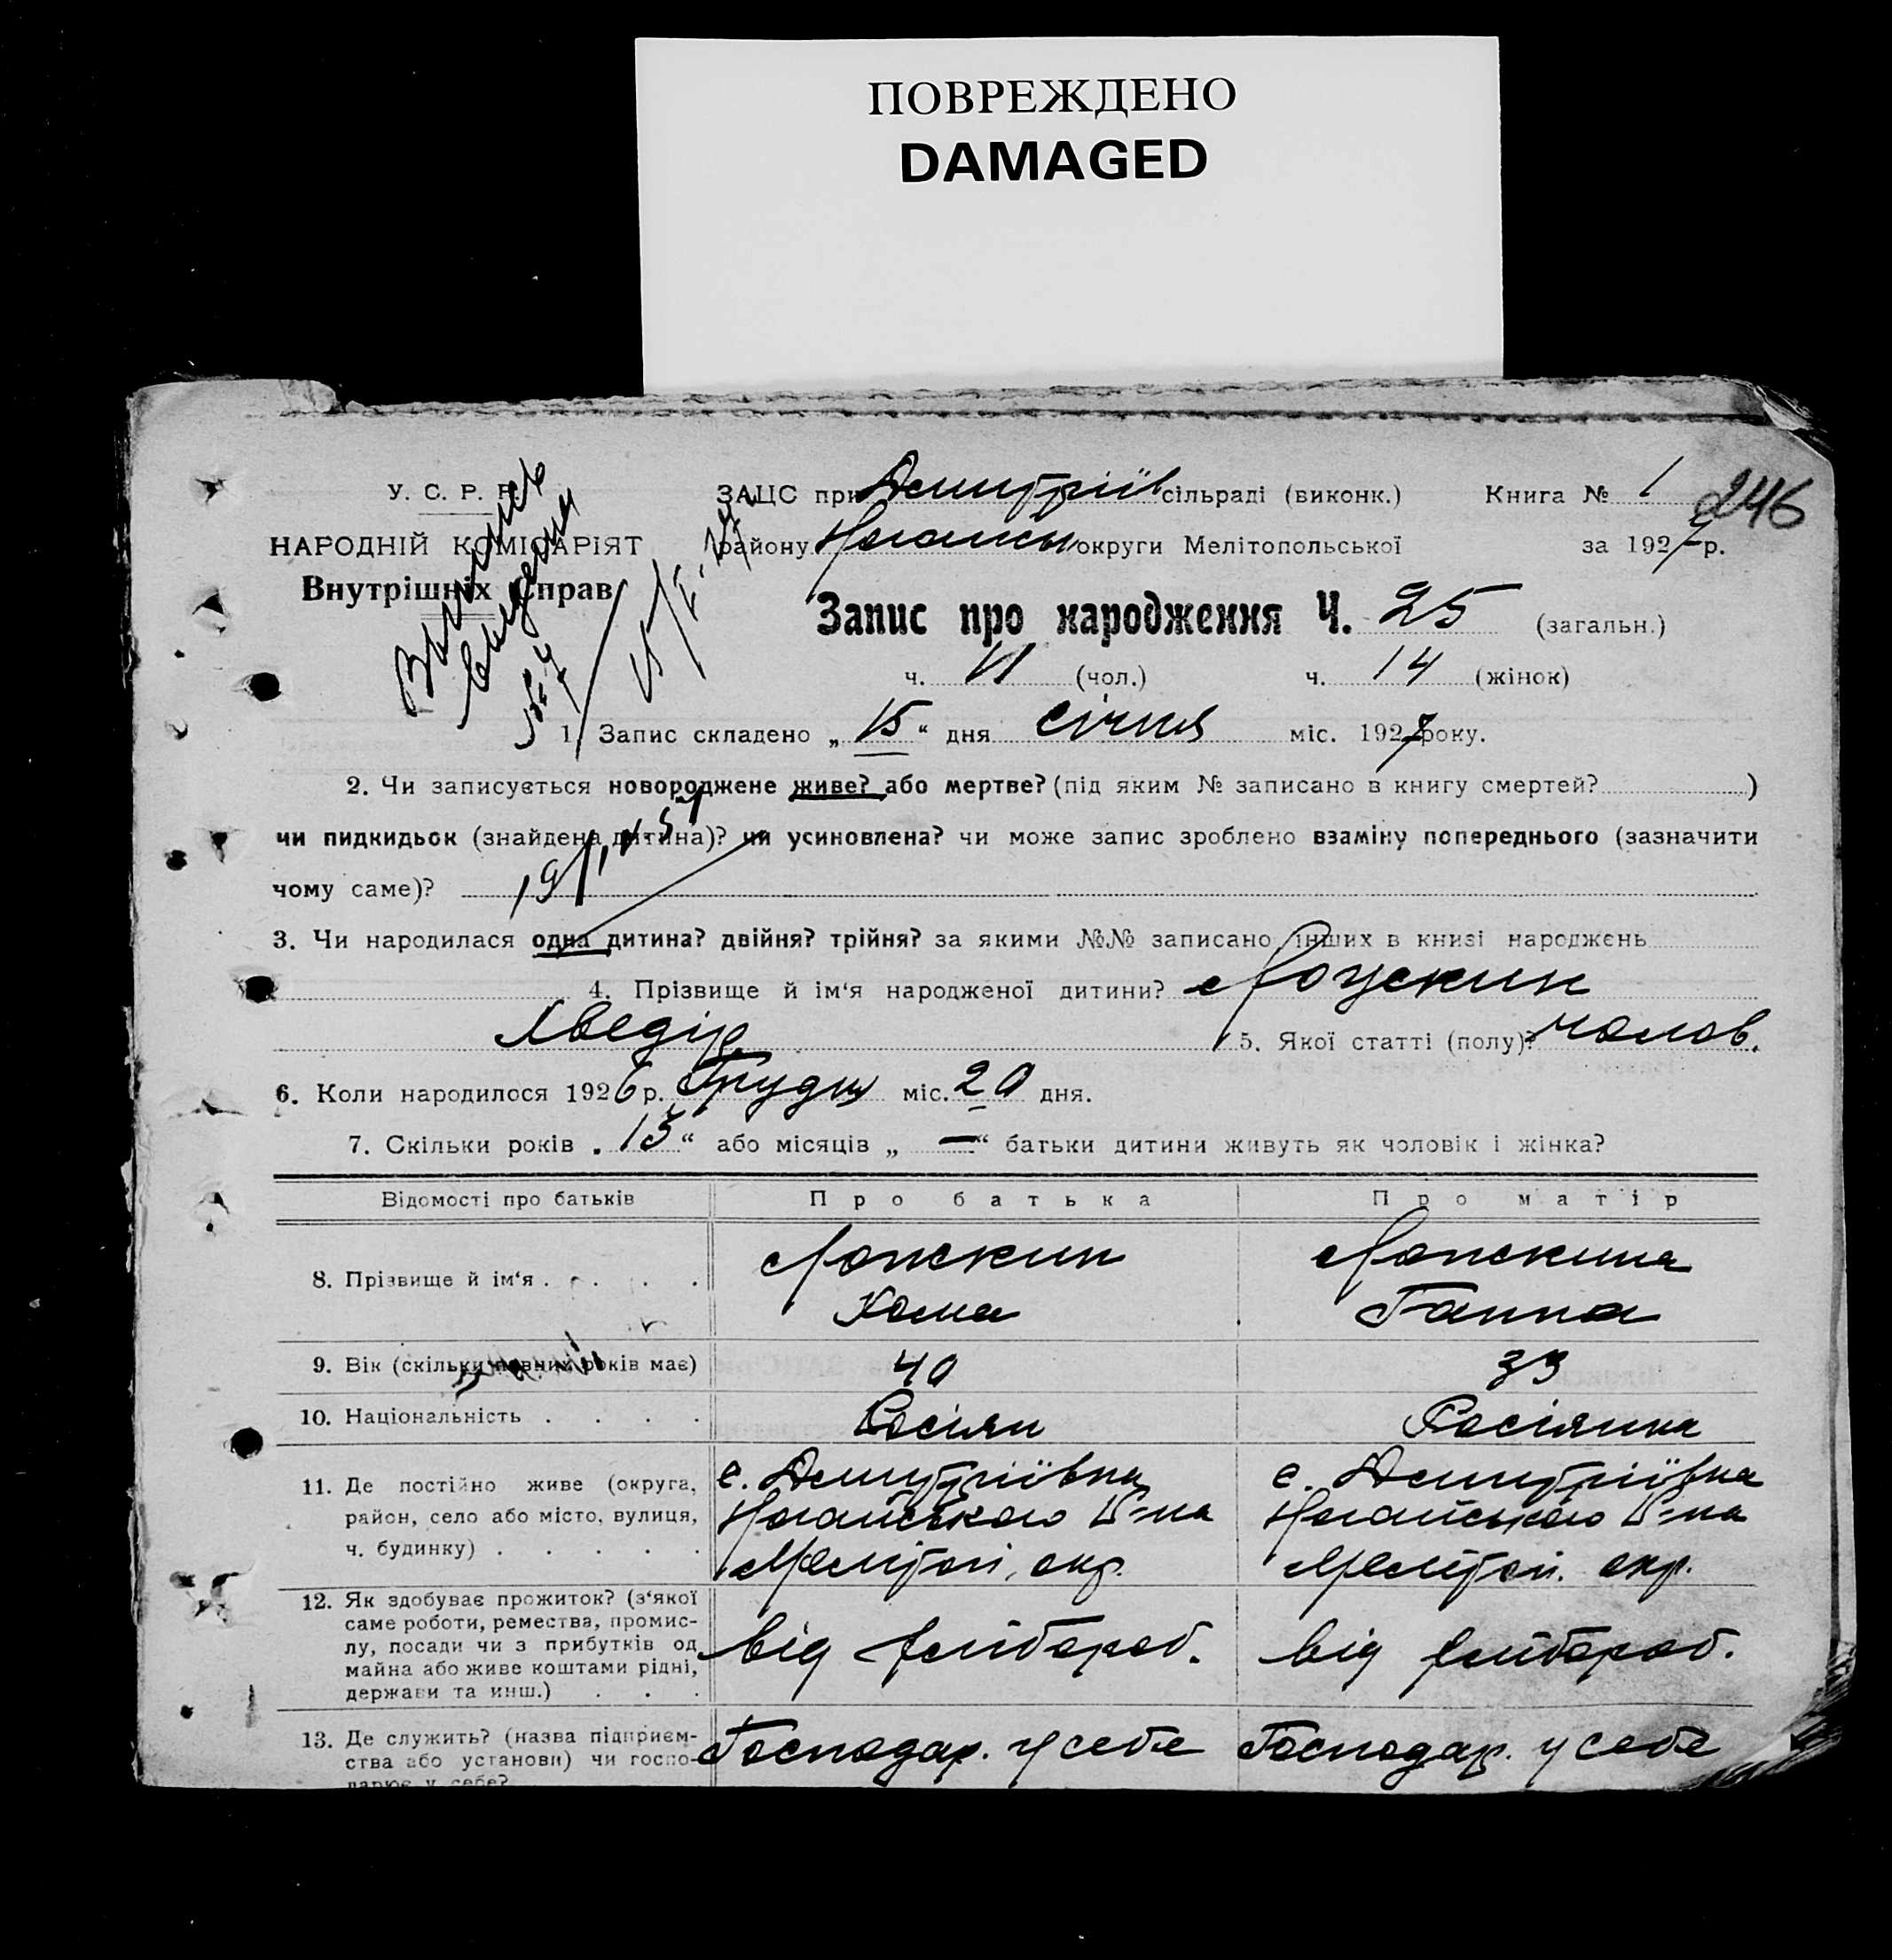 ПОВРЕЖДЕНО
DAMAGED
У. С. Р. Р.
НАРОДНІЙ КОМІСАРІЯТ
Внутрішніх Справ
ЗАЦС при Дмитріїв сільраді (виконк.) Книга № 1
246
району Ногайськ округи Мелітопольської за 1927 р.
Запис про народження Ч. 25 (загальн.)
ч. 11 (чол.) ч. 14 (жінок)
1. Запис складено „ 15 “ дня січня міс. 1927 року.
2. Чи записується новороджене живе? або мертве? (під яким № записано в книгу смертей? )
чи пидкидьок (знайдена дитина)? чи усиновлена? чи може запис зроблено взаміну попереднього (зазначити
чому саме)?
3. Чи народилася одна дитина? двійня? трійня? за якими №№ записано інших в книзі народжень
4. Прізвище й ім‘я народженої дитини?
Хведір 5. Якої статті (полу)? чолов.
6. Коли народилося 1926 р. Грудня міс. 20 дня.
7. Скільки років „ 15 “ або місяців „ — “ батьки дитини живуть як чоловік і жінка?
Відомості про батьків Про батька Про матір
8. Прізвище й ім‘я . . . . .
Хома Ганна
9. Вік (скільки повних років має) 40 39
10. Національність . . . . Росіян Росіянка
11. Де постійно живе (округа, с. Дмитріївка с. Дмитріївка
район, село або місто, вулиця, Ногайського р-на Ногайського р-на
ч. будинку) . . . . . Меліт оп. окр. Мелітоп. окр.
12. Як здобуває прожиток? (з‘якої
саме роботи, ремества, промис-
лу, посади чи з прибутків од від хлібороб. від хлібороб.
майна або живе коштами рідні,
держави та инш.) . . .
13. Де служить? (назва підприєм- Господар. у себе Господар. у себе
ства або установи) чи госпо-
дарює у себе?